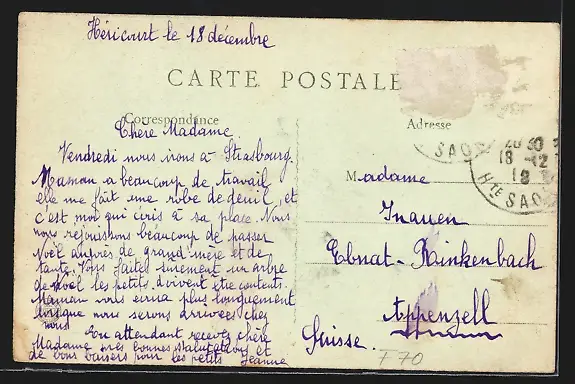 Héricourt le 18 décembre
CARTE POSTALE
Correspondance
Adresse
Chère Madame.
Vendredi nous irons à Strasbourg.
Maman a beaucoup de travail
elle me fait une robe de deuil et
c'est moi qui ecris à sa plase. Nous
nous rejouissons beaucoup de passer
Noël auprès de grand'mère et de
tante. Vous faites surement un arbre
de Noël les petits doivent être contents.
Maman vous ecrira plus longuement
lorsque nous serons arrivées chez
nous
En attendant recevez chère
Madame mes bonnes salutations et
de bons baisers pour les petits Jeanne
Madame
Inauen
Ebnat-Rinkenbach
Appenzell
Suisse.
F70
18-12
18
Hte SAO
SAO